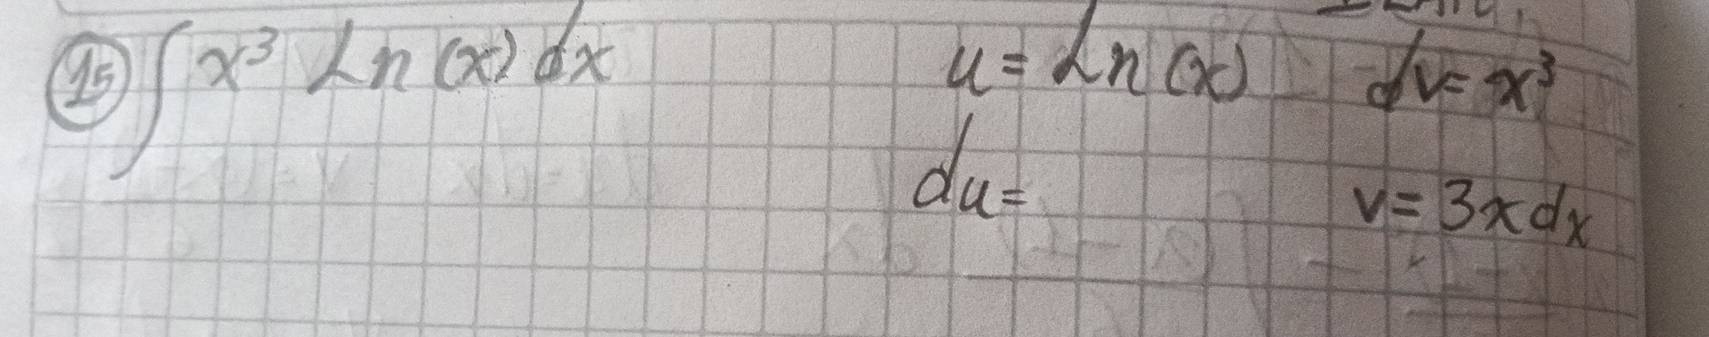 15 ∫ x³ Ln(x) dx u = Ln(x) dv = x³
du = v = 3x dx